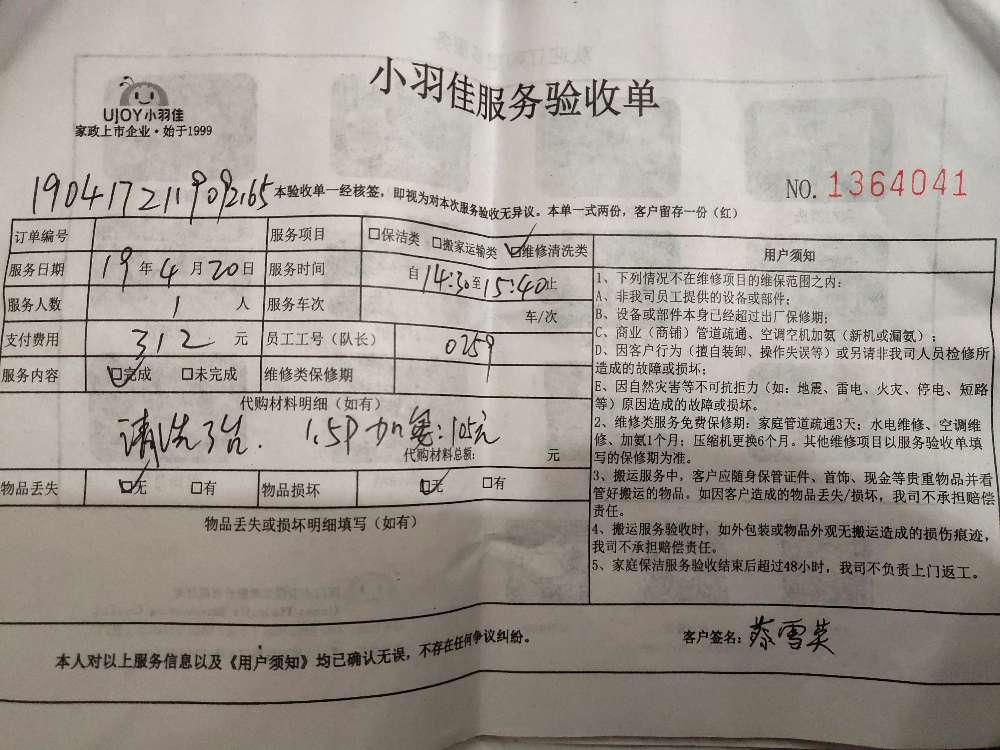 小羽佳服务验收单
UJOY小羽佳
家政上市企业·始于1999
190417211909265 本验收单一经核签，即视为对本次服务验收无异议。本单一式两份，客户留存一份（红）
NO. 1364041
订单编号 服务项目 □保洁类 □搬家运输类 ☑维修清洗类
服务日期 19 年 4 月 20 日 服务时间 自 14:30 至 15:40 止
服务人数 1 人 服务车次 车/次
支付费用 312 元 员工工号（队长） 0259
服务内容 ☑完成 □未完成 维修类保修期
代购材料明细（如有）
清洗3台. 1.5P加氟:105元
代购材料总额: 元
物品丢失 ☑无 □有 物品损坏 ☑无 □有
物品丢失或损坏明细填写（如有）
用户须知
1、下列情况不在维修项目的维保范围之内:
A、非我司员工提供的设备或部件;
B、设备或部件本身已经超过出厂保修期;
C、商业（商铺）管道疏通、空调空机加氨（新机或漏氨）;
D、因客户行为（擅自装卸、操作失误等）或另请非我司人员检修所
造成的故障或损坏;
E、因自然灾害等不可抗拒力（如: 地震、雷电、火灾、停电、短路
等）原因造成的故障或损坏。
2、维修类服务免费保修期: 家庭管道疏通3天; 水电维修、空调维
修、加氨1个月; 压缩机更换6个月。其他维修项目以服务验收单填
写的保修期为准。
3、搬运服务中，客户应随身保管证件、首饰、现金等贵重物品并看
管好搬运的物品。如因客户造成的物品丢失/损坏，我司不承担赔偿
责任。
4、搬运服务验收时，如外包装或物品外观无搬运造成的损伤痕迹，
我司不承担赔偿责任。
5、家庭保洁服务验收结束后超过48小时，我司不负责上门返工。
本人对以上服务信息以及《用户须知》均已确认无误，不存在任何争议纠纷。
客户签名: 蔡雪英